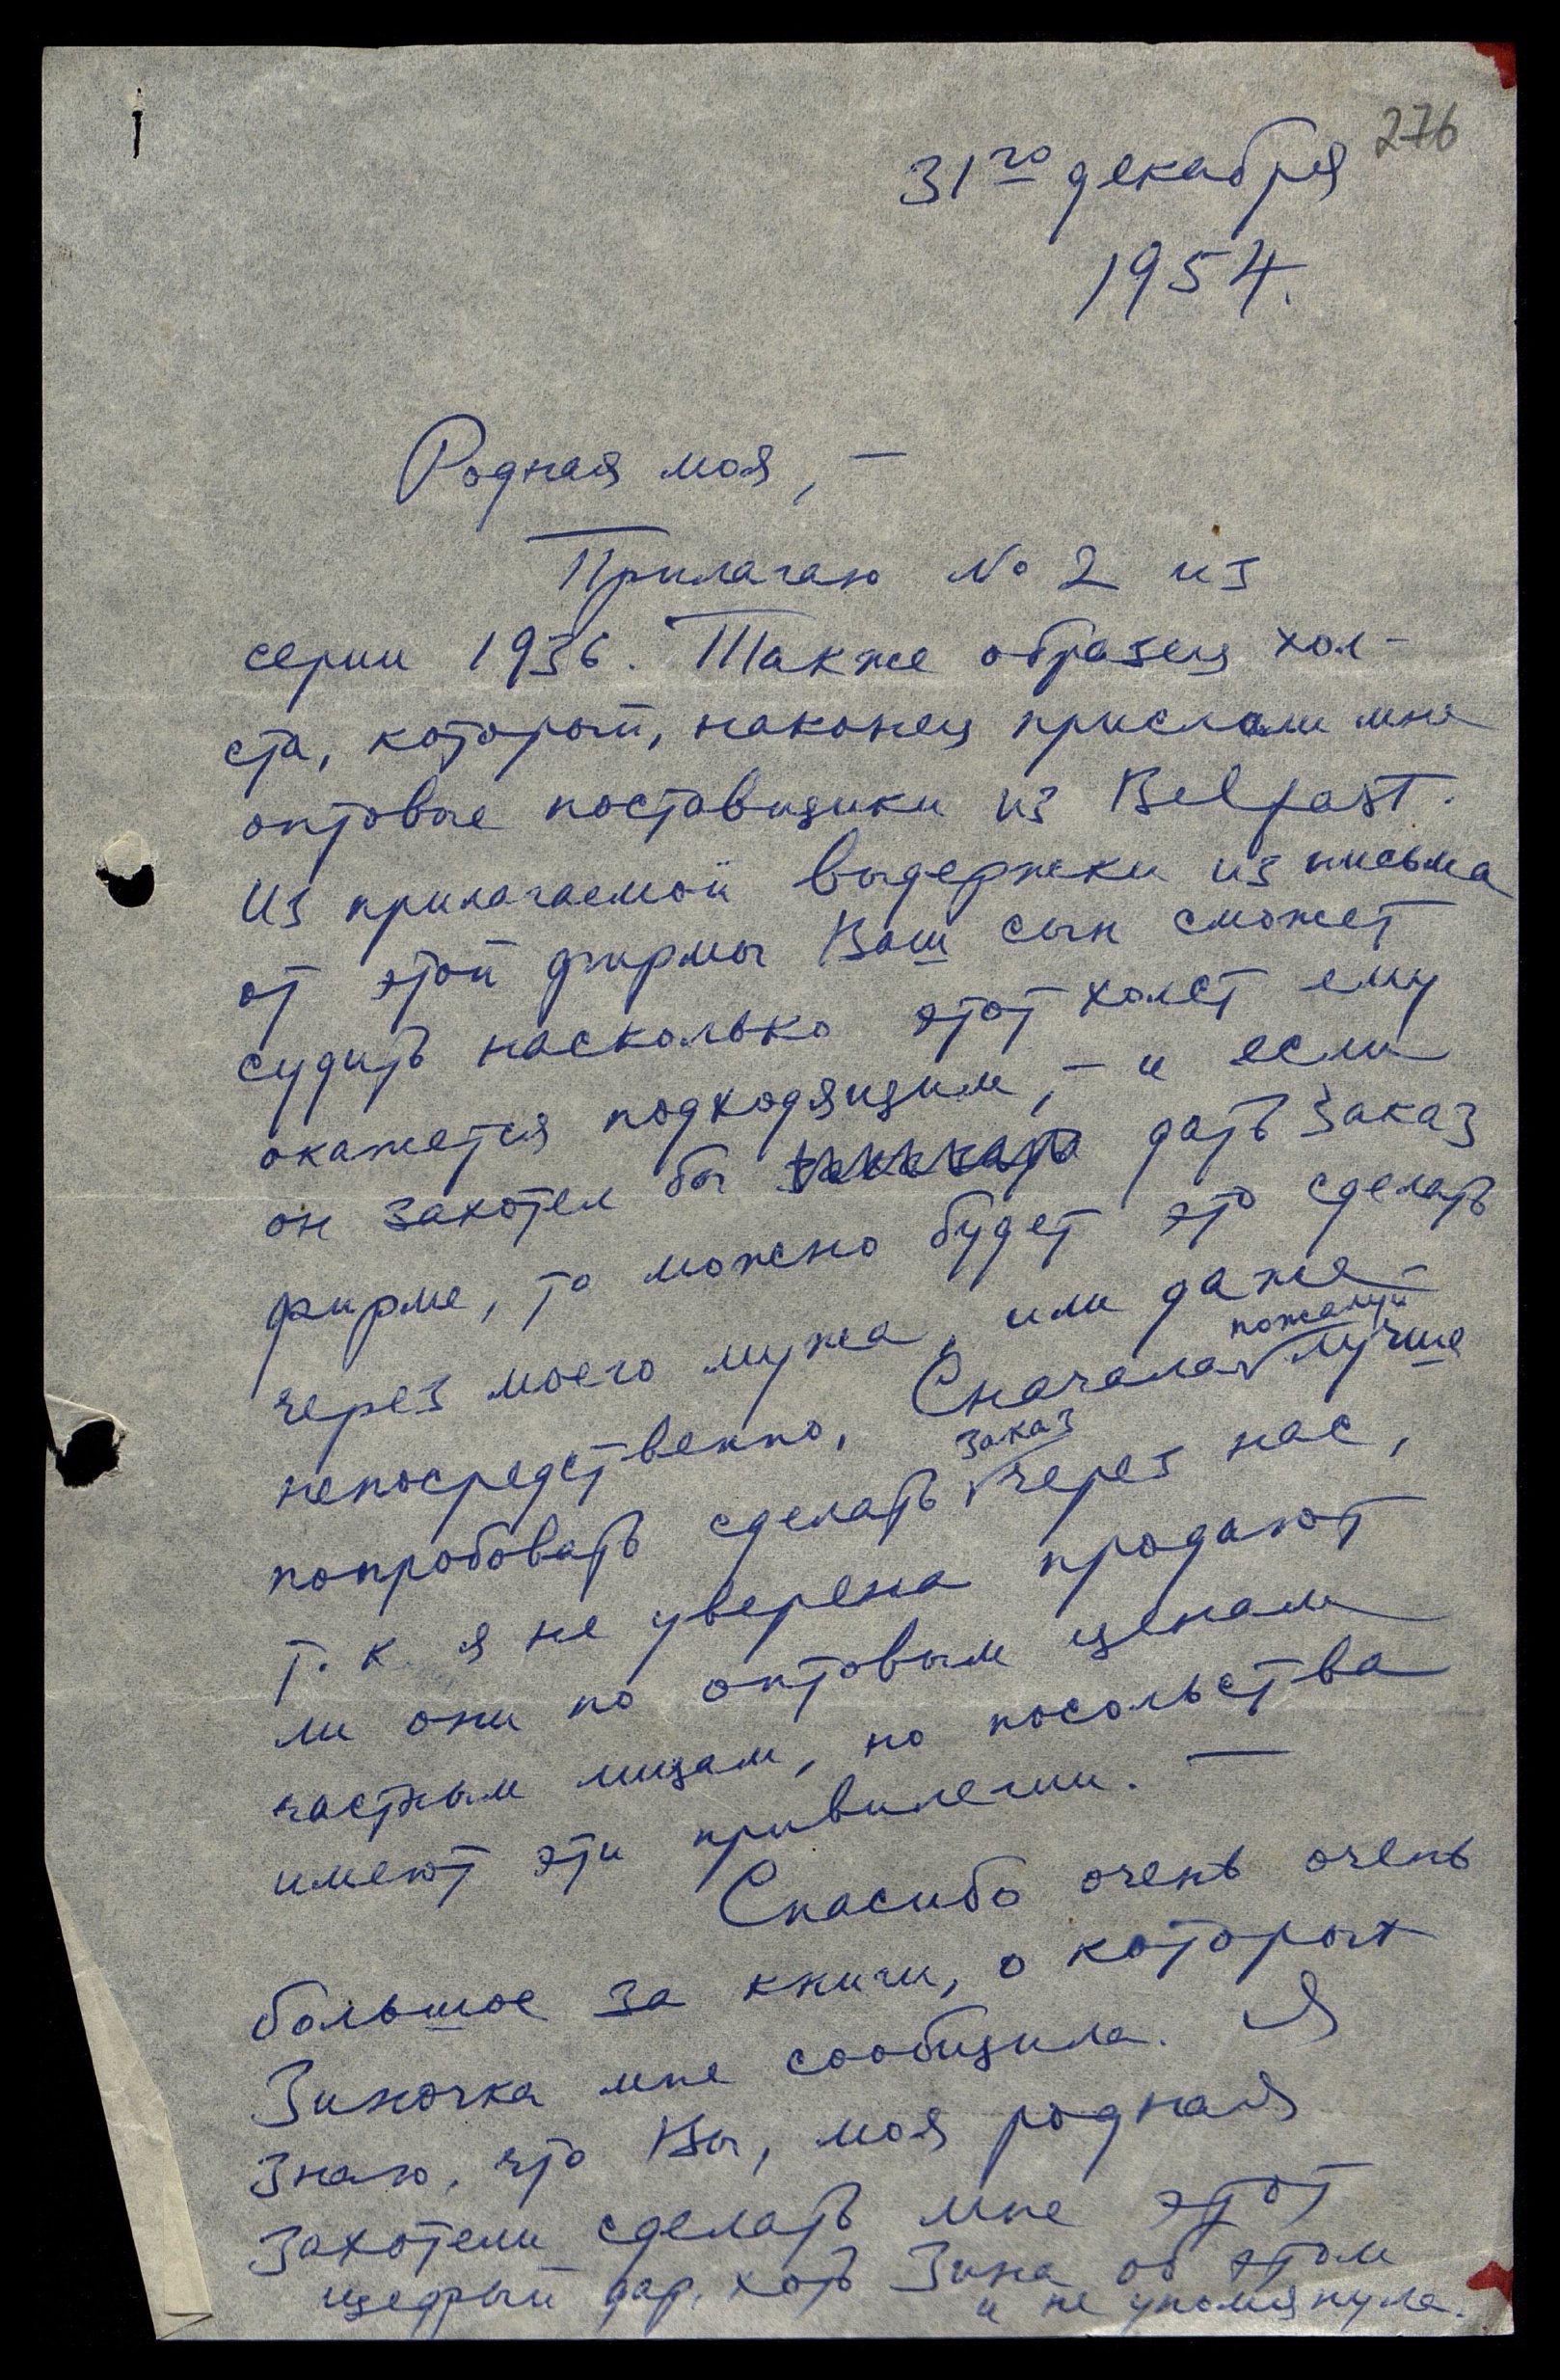 276
31го декабря
1954.
Родная моя, —
Прилагаю № 2 из
серии 1936. Также образец хол-
ста, который, наконец прислали мне
оптовые поставщики из Belfast.
Из прилагаемой выдержки из письма
от этой фирмы Ваш сын сможет
судить насколько этот холст ему
окажется подходящим, — и если
он захотел бы дать заказ
фирме, то можно будет это сделать
через моего мужа, или даже
непосредственно. Сначала пожалуй лучше
попробовать сделать заказ через нас,
т. к. я не уверена продают
ли они по оптовым ценам
частным лицам, но посольства
имеют эти привилегии. —
Спасибо очень очень
большое за книги, о которых
Зиночка мне сообщила. Я
знаю, что Вы, моя родная
захотели сделать мне этот
щедрый дар, хоть Зина об этом
и не упомянула.